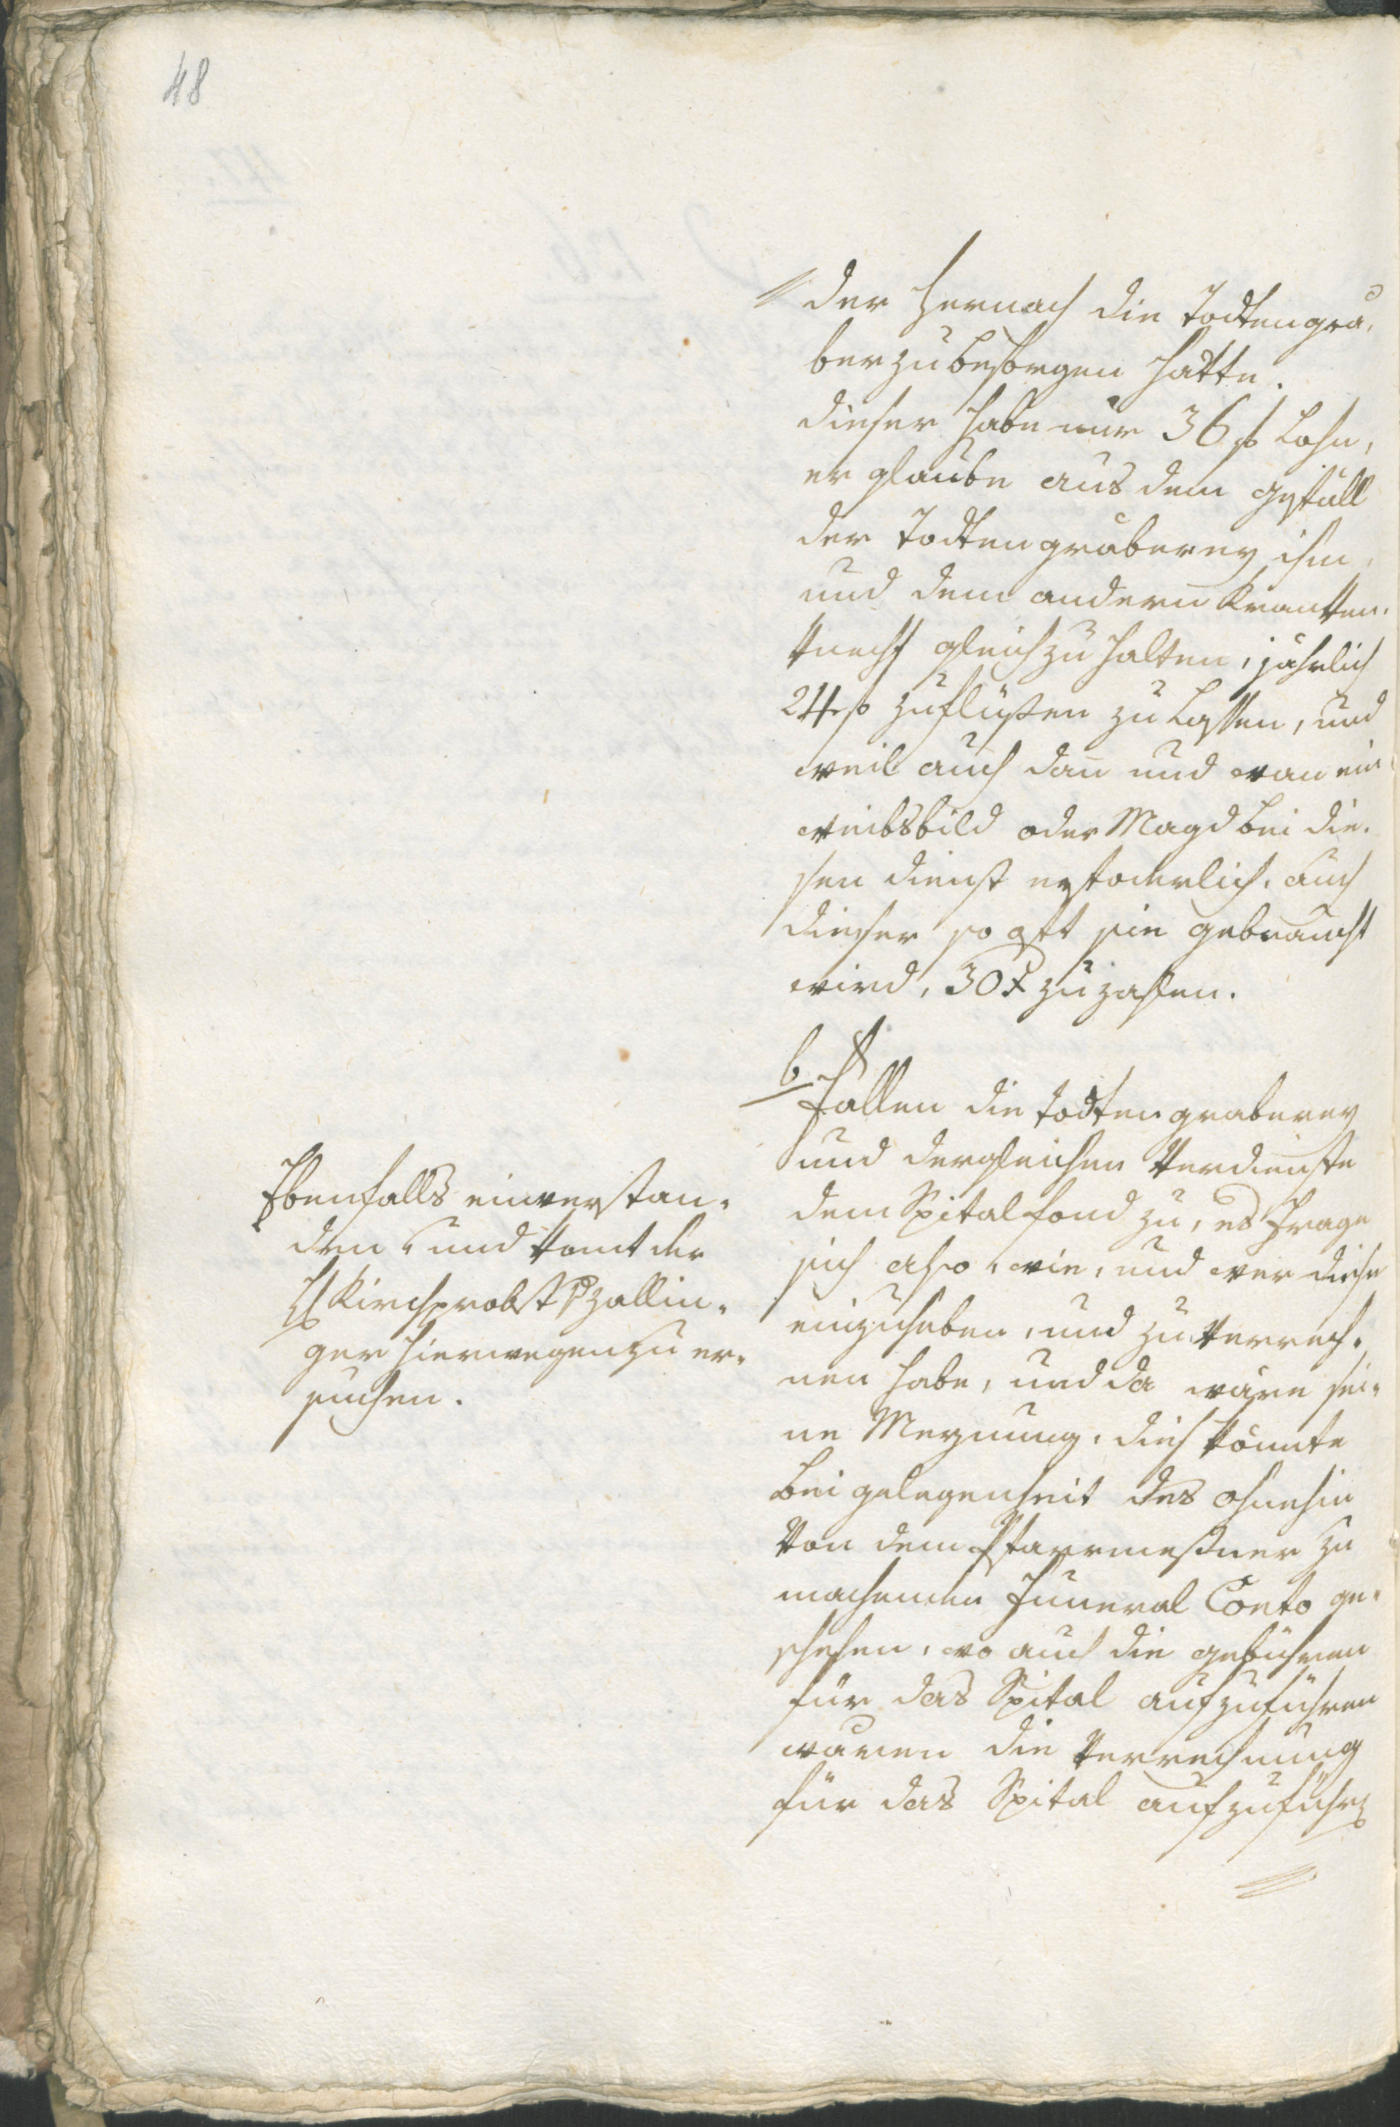 48
der hernach die Todtengrä,
ber zu besorgen hätte.
dieser habe nur 36 f Lohn,
er glaube aus dem gefäll
der Todtengräberey ihm,
und dem andern Kranken,
knecht gleich zu halten, jährlich
24 f zuflüßen zu lassen, und
weil auch dan und wan ein
weibsbild oder Magd bei die,
sen dienst erfoderlich, auch
dieser so oft sie gebraucht
wird, 30 x zu zahlen.
b. Fallen die todtengraberey
und dergleichen Verdienste
dem Spitalfond zu, es frage
sich also, wie, und wer diese
einzuheben, und zu verrech,
nen habe, und da wäre sei,
ne Meynung, dieß könnte
bei gelegenheit des ohnehin
von dem Pfarrmeßner zu
machenden Funeral Conto ge,
schehen, wo auch die gebühren
für das Spital aufzuführen
wären die Verrechnung
für das Spital aufzuführen
Ebenfalls einverstan,
den, und komt der
H Kirchprobst v zallin,
ger hierwegen zu er,
suchen.